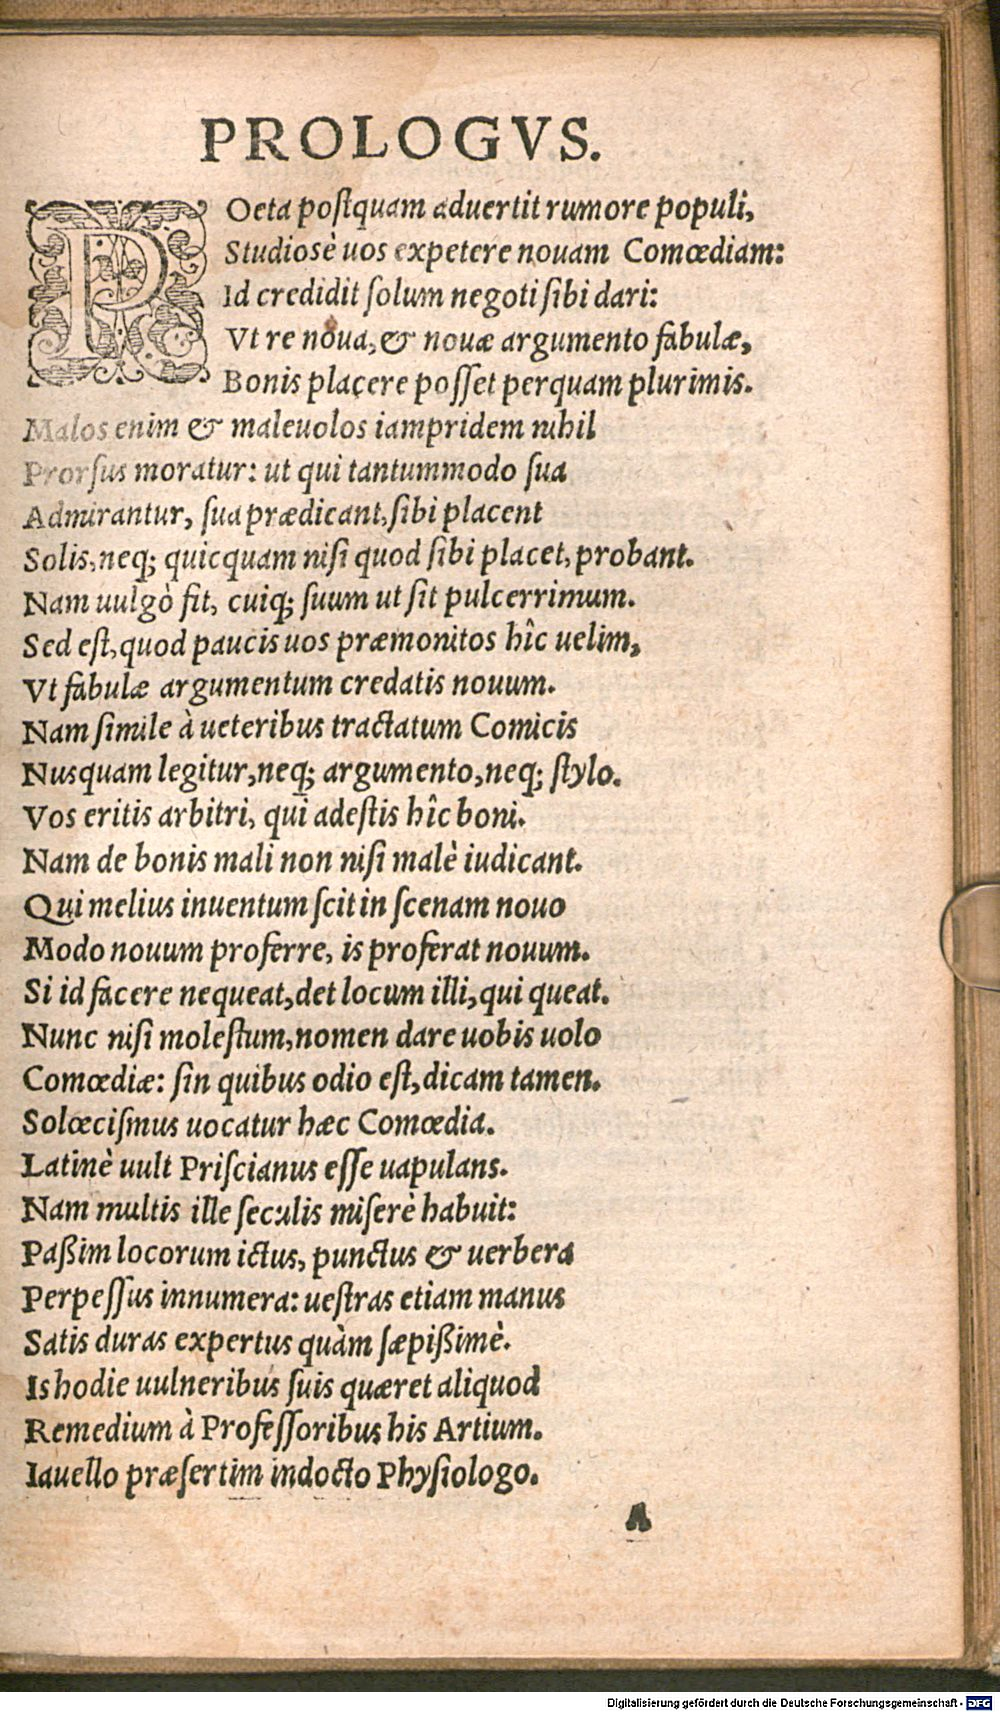 PROLOGVS.
POeta postquam aduertit rumore populi,
Studiosè uos expetere nouam Comœdiam:
Id credidit solum negoti sibi dari:
Vt re noua, & nouæ argumento fabulæ,
Bonis placere posset perquam plurimis.
Malos enim & maleuolos iampridem nihil
Prorsus moratur: ut qui tantummodo sua
Admirantur, sua prædicant, sibi placent
Solis, neq; quicquam nisi quod sibi placet, probant.
Nam uulgò fit, cuiq; suum ut sit pulcerrimum.
Sed est, quod paucis uos præmonitos hîc uelim,
Vt fabulæ argumentum credatis nouum.
Nam simile à ueteribus tractatum Comicis
Nusquam legitur, neq; argumento, neq; stylo.
Vos eritis arbitri, qui adestis hîc boni.
Nam de bonis mali non nisi malè iudicant.
Qui melius inuentum scit in scenam nouo
Modo nouum proferre, is proferat nouum.
Si id facere nequeat, det locum illi, qui queat.
Nunc nisi molestum, nomen dare uobis uolo
Comœdiæ: sin quibus odio est, dicam tamen.
Solœcismus uocatur hæc Comœdia.
Latinè uult Priscianus esse uapulans.
Nam multis ille seculis miserè habuit:
Paßim locorum ictus, punctus & uerbera
Perpessus innumera: uestras etiam manus
Satis duras expertus quàm sæpißimè.
Is hodie uulneribus suis quæret aliquod
Remedium à Professoribus his Artium.
Iauello præsertim indocto Physiologo.
A
Digitalisierung gefördert durch die Deutsche Forschungsgemeinschaft - DFG